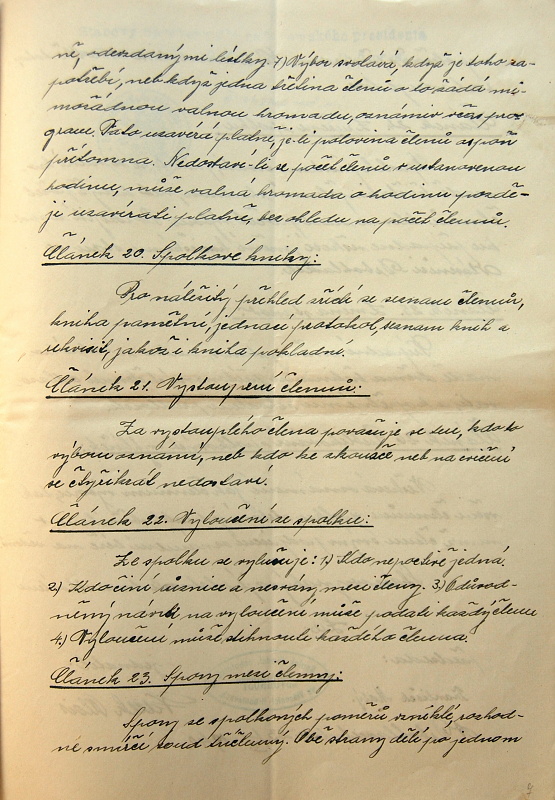 ně, odevzdanými lístky. 7) Výbor svolává, když je toho za-
potřebí, neb když jedna třetina členů o to žádá mi-
mořádnou valnou hromadu, oznámiv včas pro
gram. Tato uzavírá platně, je-li polovina členů aspoň
přítomna. Nedostaví-li se počet členů v ustanovenou
hodinu, může valná hromada o hodinu pozdě-
ji uzavírati platně, bez ohledu na počet členů.
Článek 20. Spolkové knihy:
Pro náležitý přehled zřídí se seznam členů,
kniha pamětní, jednací protokol, seznam knih a
rekvisit, jakož i kniha pokladní.
Článek 21. Vystoupení členů:
Za vystouplého člena považuje se ten, kdo to
výboru oznámí, neb kdo ke zkoušce neb na cvičení
se čtyřikrát nedostaví.
Článek 22. Vyloučení ze spolku:
Ze spolku se vylučuje: 1.) Kdo nepoctivě jedná.
2) Kdo činí různice a nesváry mezi členy. 3.) Odůvod-
něný návrh na vyloučení může podati každý člen
4.) Vyloučení může stihnouti každého člena.
Článek 23. Spory mezi členy:
Spory ze spolkových poměrů vzniklé, rozhod-
ne smírčí soud tříčlenný. Obě strany dělí po jednom